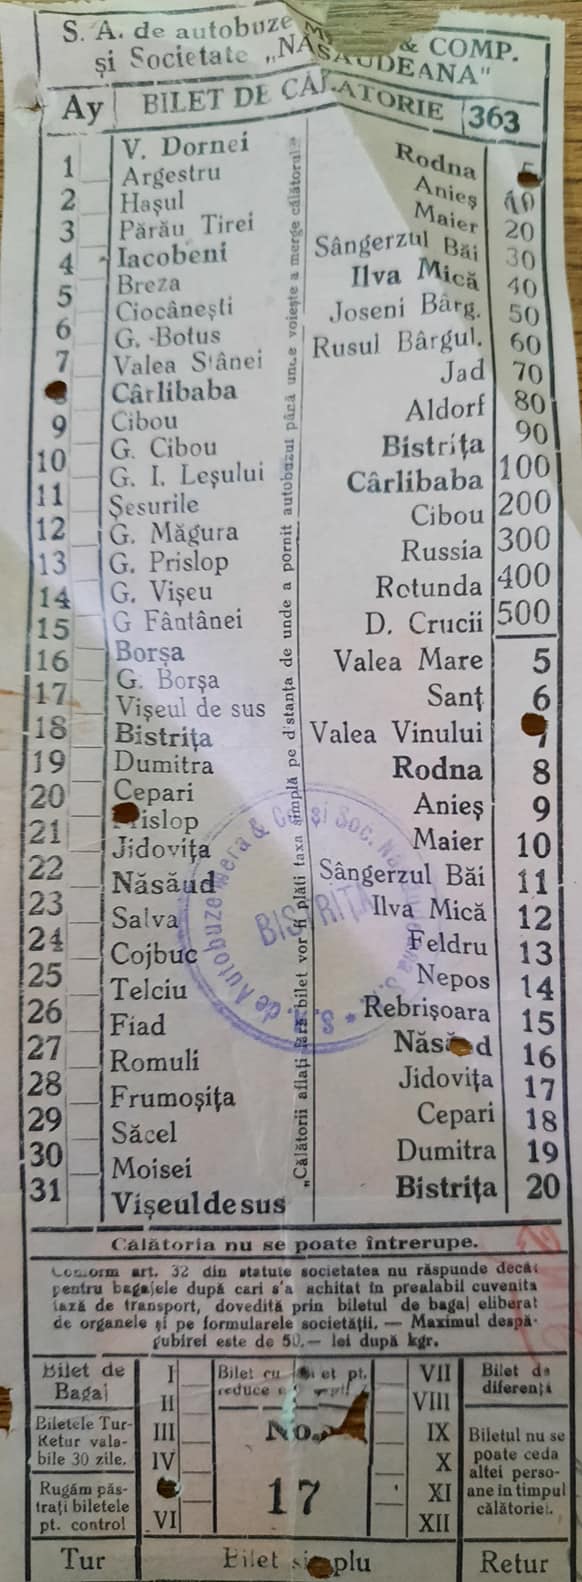 S. A. de autobuze & COMP.
și Societate „NĂSĂUDEANA"
Ay BILET DE CĂLĂTORIE 363
1
2
3
4
5
6
7
9
10
11
12
13
14
15
16
17
18
19
20
21
22
23
24
25
26
27
28
29
30
31
V. Dornei
Argestru
Hașul
Părău Tirei
Iacobeni
Breza
Ciocănești
G. Botus
Valea Stânei
Cârlibaba
Cibou
G. Cibou
G. I. Leșului
Șesurile
G. Măgura
G. Prislop
G. Vișeu
G Fântânei
Borșa
G. Borșa
Vișeul de sus
Bistrița
Dumitra
Cepari
Prislop
Jidovița
Năsăud
Salva
Cojbuc
Telciu
Fiad
Romuli
Frumoșița
Săcel
Moisei
Vișeul de sus
„Călătorii aflați fără bilet vor fi plăti taxa simplă pe distanța de unde a pornit autobuzul până unde voiește a merge călătorul"
Rodna 5
Anieș 10
Maier 20
Sângerzul Băi 30
Ilva Mică 40
Joseni Bârg. 50
Rusul Bârgul. 60
Jad 70
Aldorf 80
Bistrița 90
Cârlibaba 100
Cibou 200
Russia 300
Rotunda 400
D. Crucii 500
Valea Mare 5
Sanț 6
Valea Vinului 7
Rodna 8
Anieș 9
Maier 10
Sângerzul Băi 11
Ilva Mică 12
Feldru 13
Nepos 14
Rebrișoara 15
Năsăud 16
Jidovița 17
Cepari 18
Dumitra 19
Bistrița 20
S. A. de Autobuze Mera & Co și Soc. Năsăudeana
BISTRIȚA
Călătoria nu se poate întrerupe.
Conform art. 32 din statute societatea nu răspunde decât
pentru bagajele după cari s'a achitat în prealabil cuvenita
taxă de transport, dovedită prin biletul de bagaj eliberat
de organele și pe formularele societății. — Maximul despă-
gubirei este de 50.— lei după kgr.
Bilet de
Bagaj
Biletele Tur-
Retur vala-
bile 30 zile.
Rugăm păs-
trați biletele
pt. control
Tur
I
II
III
IV
VI
Bilet cu pt.
reduce
No.
17
Bilet simplu
VII
VIII
IX
X
XI
XII
Bilet de
diferență
Biletul nu se
poate ceda
altei perso-
ane în timpul
călătoriei.
Retur